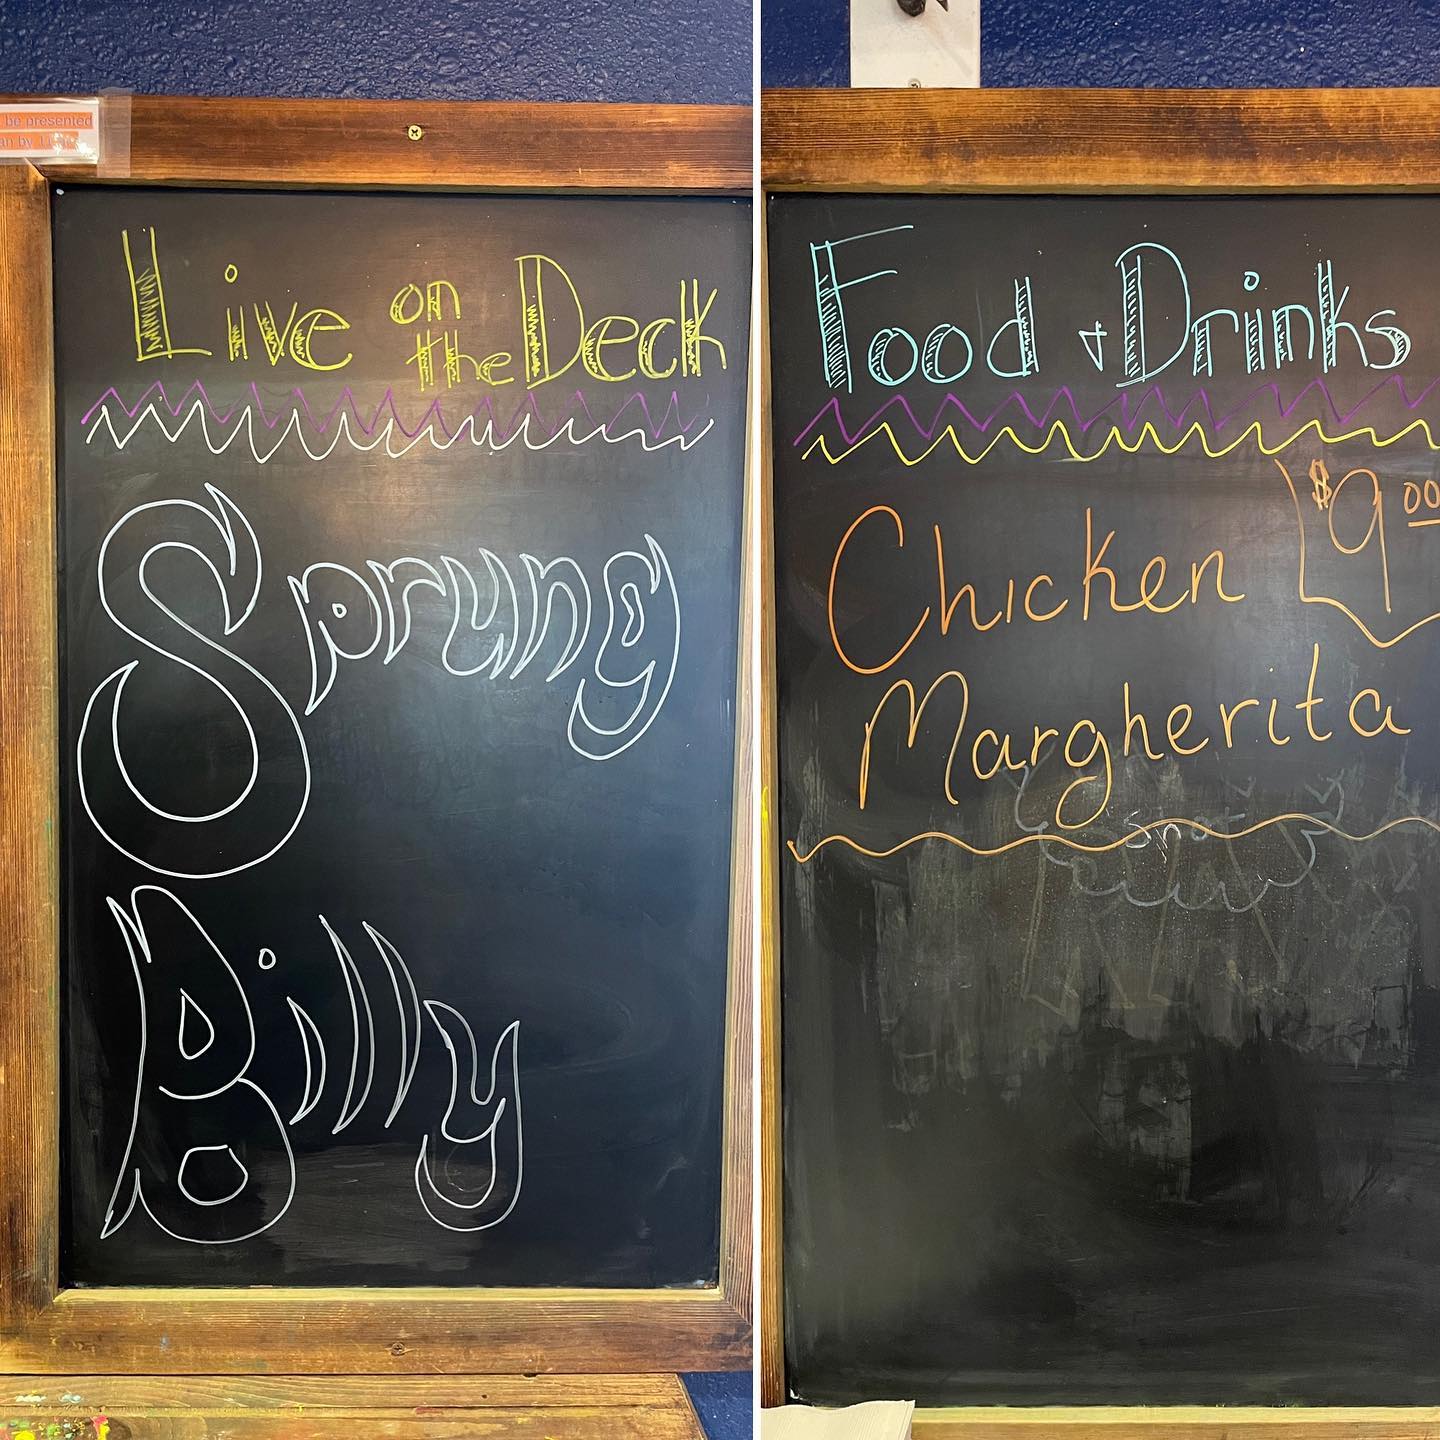 be presented
Live on the Deck
Sprung
Billy
Food & Drinks
Chicken
$9.00
Margherita